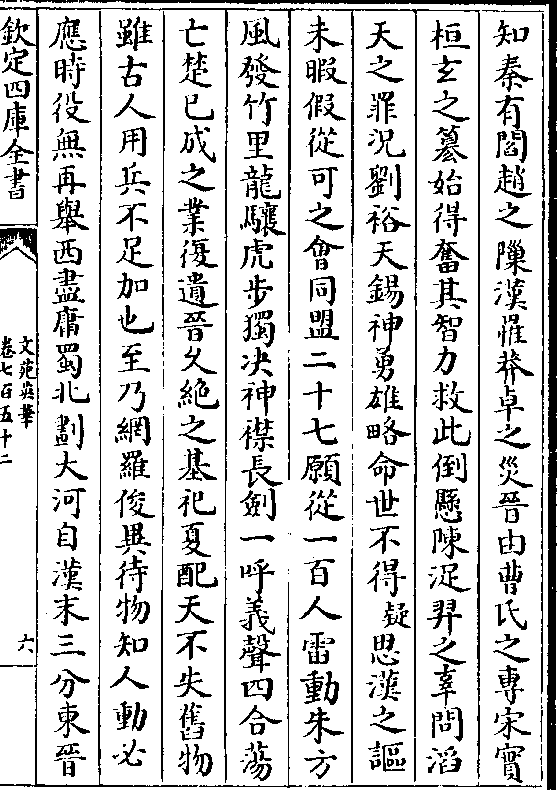 知秦有閻趙之隟漢罹莽卓之災晉由曹氏之專宋實
桓𤣥之簒始得奮其智力救此倒懸陳浞羿之辜問滔
天之罪況劉裕天錫神勇雄略命世不得擬思漢之謳
未暇假從可之會同盟二十七願從一百人雷動朱方
風發竹里龍驤虎步獨決神襟長劍一呼義聲四合蕩
亡楚已成之業復遺晉乆絶之基祀夏配天不失舊物
雖古人用兵不足加也至乃網羅俊異待物知人動必
應時役無再舉西盡庸蜀北劃大河自漢末三分東晉
欽定四庫全書
文苑英華
卷七百五十二
六